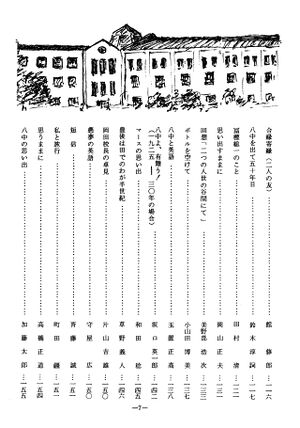 合縁客縁（二人の友）…………館 修郎…一一六
八中を出て五十年目…………鈴木淳詞…一一七
冨樫龍一のこと…………田村清…一二一
思い出すままに…………岡山正夫…一二三
回想「二つの人世の谷間にて」…………浩次…一二七
ボトルを空けて…………小山田博美…一三七
八中と英語…………正高…一三八
八中よ、有難う！
（一九二五――三〇年の場合）…………坂口英一郎…一四二
マースの思い出…………和田稔…一四五
最後は田でのわが半世紀…………草野義人…一四六
岡田校長の卓見…………片山吉雄…一五〇
悪夢の英語…………守屋広…一五〇
短信…………斉藤誠…一五一
私と旅行…………町田…一五一
思うままに…………高橋正道…一五四
八中の思い出…………加藤太郎…一五五
―7―